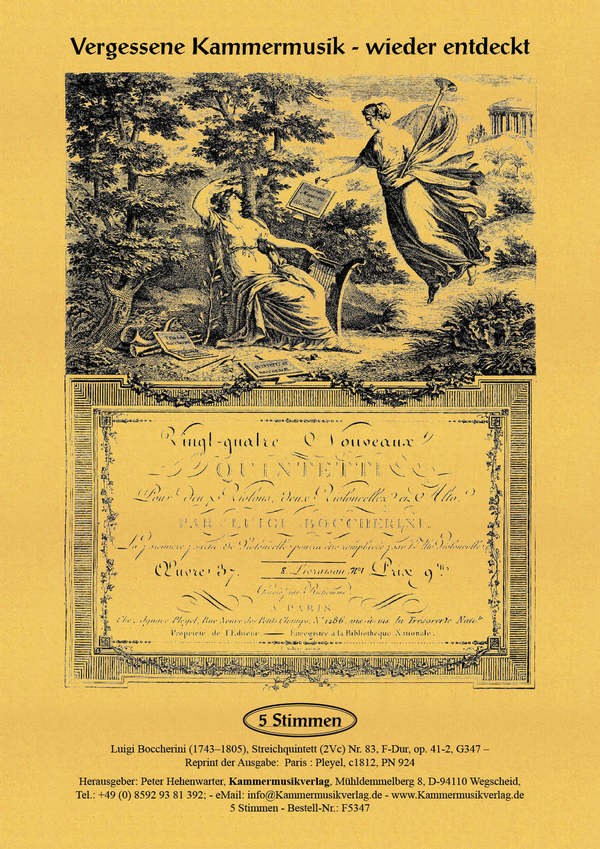 Vergessene Kammermusik - wieder entdeckt
Vingt-quatre Nouveaux
QUINTETTI
Pour deux Violons, deux Violoncelles et Alto.
PAR LUIGI BOCCHERINI.
La partie de Violoncelle pourra être remplacée par Alto Violoncelle
Œuvre 37. 8. Livraison. Nº1 Prix 9
Gravés par Richomme
A PARIS
Chez Ignace Pleyel, Rue Neuve des Petits Champs, Nº 1286, vis-à-vis la Trésorerie Natle
Propriété de l'Editeur — Enregistré à la Bibliothèque Nationale.
5 Stimmen
Luigi Boccherini (1743–1805), Streichquintett (2Vc) Nr. 83, F-Dur, op. 41-2, G347 –
Reprint der Ausgabe: Paris : Pleyel, c1812, PN 924
Herausgeber: Peter Hehenwarter, Kammermusikverlag, Mühldemmelberg 8, D-94110 Wegscheid,
Tel.: +49 (0) 8592 93 81 392; - eMail: info@Kammermusikverlag.de - www.Kammermusikverlag.de
5 Stimmen - Bestell-Nr.: F5347